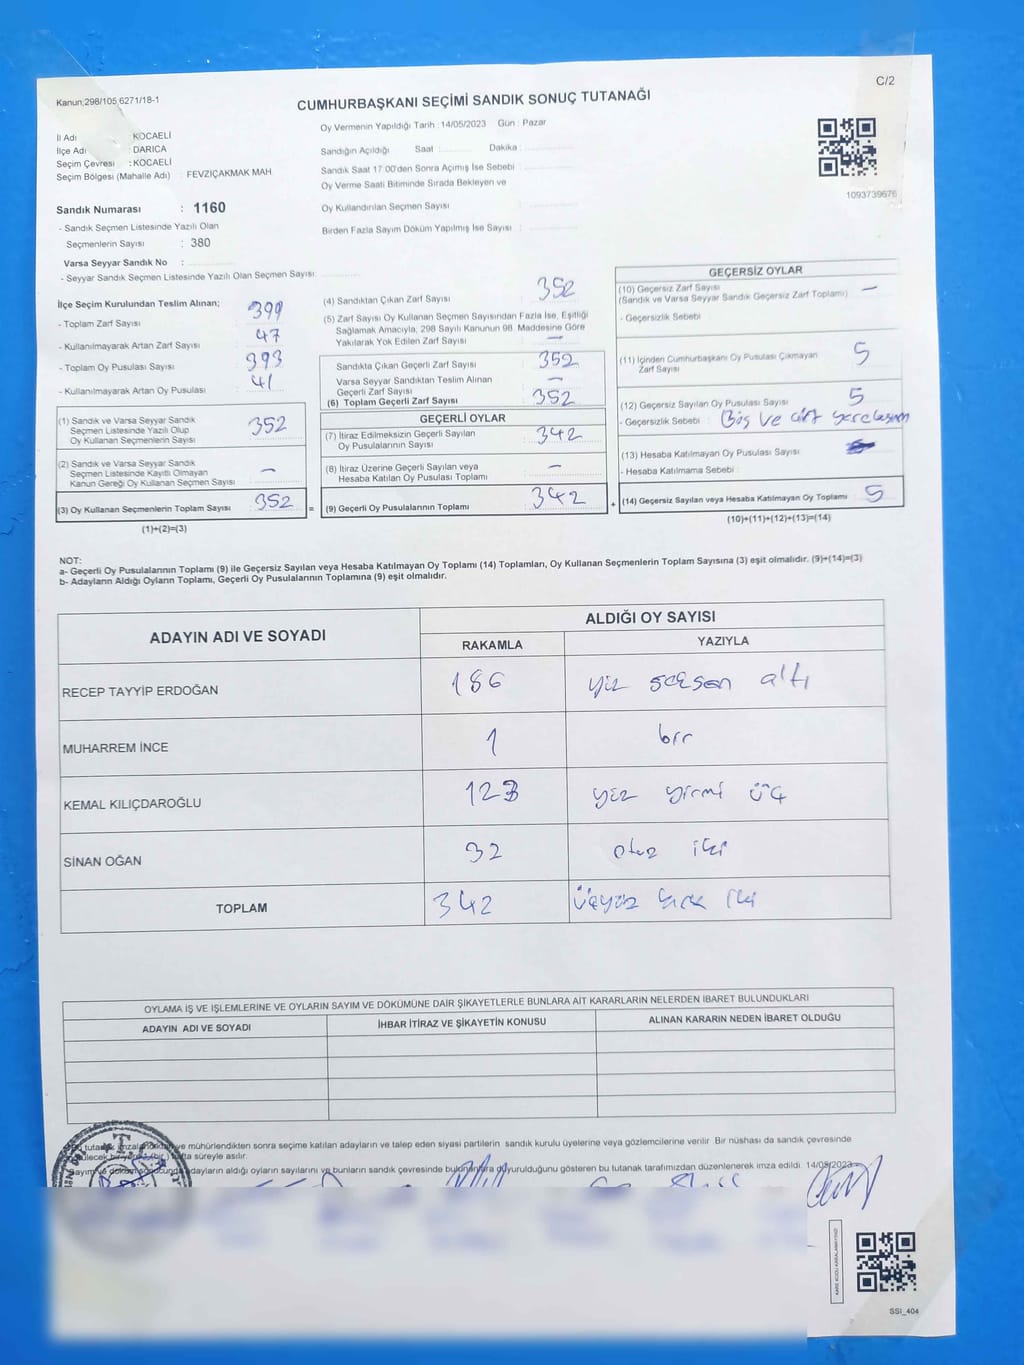 C/2
Kanun;298/105,6271/18-1
CUMHURBAŞKANI SEÇİMİ SANDIK SONUÇ TUTANAĞI
İl Adı : KOCAELİ
İlçe Adı : DARICA
Seçim Çevresi : KOCAELİ
Seçim Bölgesi (Mahalle Adı) : FEVZİÇAKMAK MAH
Sandık Numarası : 1160
- Sandık Seçmen Listesinde Yazılı Olan
Seçmenlerin Sayısı : 380
Varsa Seyyar Sandık No :
- Seyyar Sandık Seçmen Listesinde Yazılı Olan Seçmen Sayısı:
Oy Vermenin Yapıldığı Tarih :14/05/2023 Gün : Pazar
Sandığın Açıldığı Saat : Dakika :
Sandık Saat 17:00'den Sonra Açımış İse Sebebi :
Oy Verme Saati Bitiminde Sırada Bekleyen ve
Oy Kullandırılan Seçmen Sayısı :
Birden Fazla Sayım Döküm Yapılmış İse Sayısı :
1093739676
İlçe Seçim Kurulundan Teslim Alınan;
- Toplam Zarf Sayısı : 399
- Kullanılmayarak Artan Zarf Sayısı : 47
- Toplam Oy Pusulası Sayısı : 393
- Kullanılmayarak Artan Oy Pusulası : 41
(1) Sandık ve Varsa Seyyar Sandık
Seçmen Listesinde Yazılı Olup
Oy Kullanan Seçmenlerin Sayısı : 352
(2) Sandık ve Varsa Seyyar Sandık
Seçmen Listesinde Kayıtlı Olmayan
Kanun Gereği Oy Kullanan Seçmen Sayısı : –
(3) Oy Kullanan Seçmenlerin Toplam Sayısı : 352
(1)+(2)=(3)
=
(4) Sandıktan Çıkan Zarf Sayısı : 352
(5) Zarf Sayısı Oy Kullanan Seçmen Sayısından Fazla İse, Eşitliği
Sağlamak Amacıyla, 298 Sayılı Kanunun 98. Maddesine Göre
Yakılarak Yok Edilen Zarf Sayısı : –
Sandıkta Çıkan Geçerli Zarf Sayısı : 352
Varsa Seyyar Sandıktan Teslim Alınan
Geçerli Zarf Sayısı : –
(6) Toplam Geçerli Zarf Sayısı : 352
GEÇERLİ OYLAR
(7) İtiraz Edilmeksizin Geçerli Sayılan
Oy Pusulalarının Sayısı : 342
(8) İtiraz Üzerine Geçerli Sayılan veya
Hesaba Katılan Oy Pusulası Toplamı : –
(9) Geçerli Oy Pusulalarının Toplamı : 342
+
GEÇERSİZ OYLAR
(10) Geçersiz Zarf Sayısı : –
(Sandık ve Varsa Seyyar Sandık Geçersiz Zarf Toplamı)
- Geçersizlik Sebebi :
(11) İçinden Cumhurbaşkanı Oy Pusulası Çıkmayan
Zarf Sayısı : 5
(12) Geçersiz Sayılan Oy Pusulası Sayısı : 5
- Geçersizlik Sebebi : Boş ve çift
(13) Hesaba Katılmayan Oy Pusulası Sayısı :
- Hesaba Katılmama Sebebi :
(14) Geçersiz Sayılan veya Hesaba Katılmayan Oy Toplamı : 5
(10)+(11)+(12)+(13)=(14)
NOT:
a- Geçerli Oy Pusulalarının Toplamı (9) ile Geçersiz Sayılan veya Hesaba Katılmayan Oy Toplamı (14) Toplamları, Oy Kullanan Seçmenlerin Toplam Sayısına (3) eşit olmalıdır. (9)+(14)=(3)
b- Adayların Aldığı Oyların Toplamı, Geçerli Oy Pusulalarının Toplamına (9) eşit olmalıdır.
ADAYIN ADI VE SOYADI
ALDIĞI OY SAYISI
RAKAMLA YAZIYLA
RECEP TAYYİP ERDOĞAN 186 yüz seksen altı
MUHARREM İNCE 1 bir
KEMAL KILIÇDAROĞLU 123 yüz yirmi üç
SİNAN OĞAN 32 otuz iki
TOPLAM 342 üçyüz kırk iki
OYLAMA İŞ VE İŞLEMLERİNE VE OYLARIN SAYIM VE DÖKÜMÜNE DAİR ŞİKAYETLERLE BUNLARA AİT KARARLARIN NELERDEN İBARET BULUNDUKLARI
ADAYIN ADI VE SOYADI İHBAR İTİRAZ VE ŞİKAYETİN KONUSU ALINAN KARARIN NEDEN İBARET OLDUĞU
tutanak ve mühürlendikten sonra seçime katılan adayların ve talep eden siyasi partilerin sandık kurulu üyelerine veya gözlemcilerine verilir. Bir nüshası da sandık çevresinde
süreyle asılır.
adayların aldığı oyların sayılarını ve bunların sandık çevresinde duyurulduğunu gösteren bu tutanak tarafımızdan düzenlenerek imza edildi. 14/05/2023
SSI_404